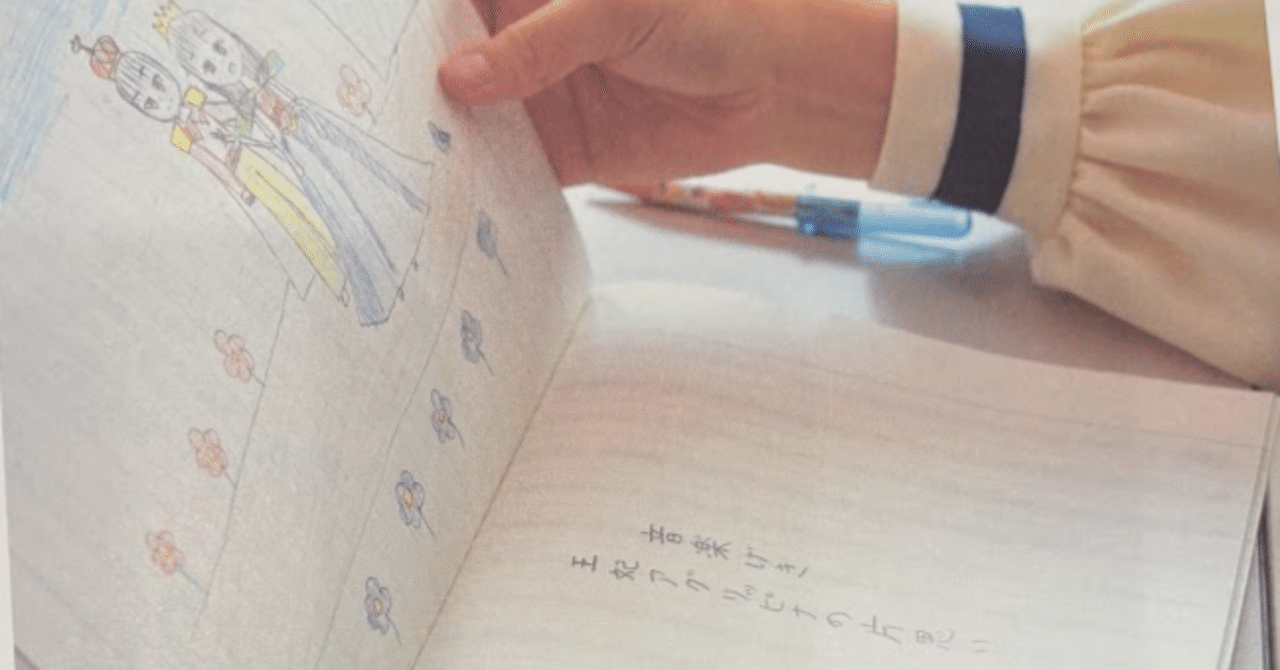 音楽げき
王妃アグリッピナの片思い